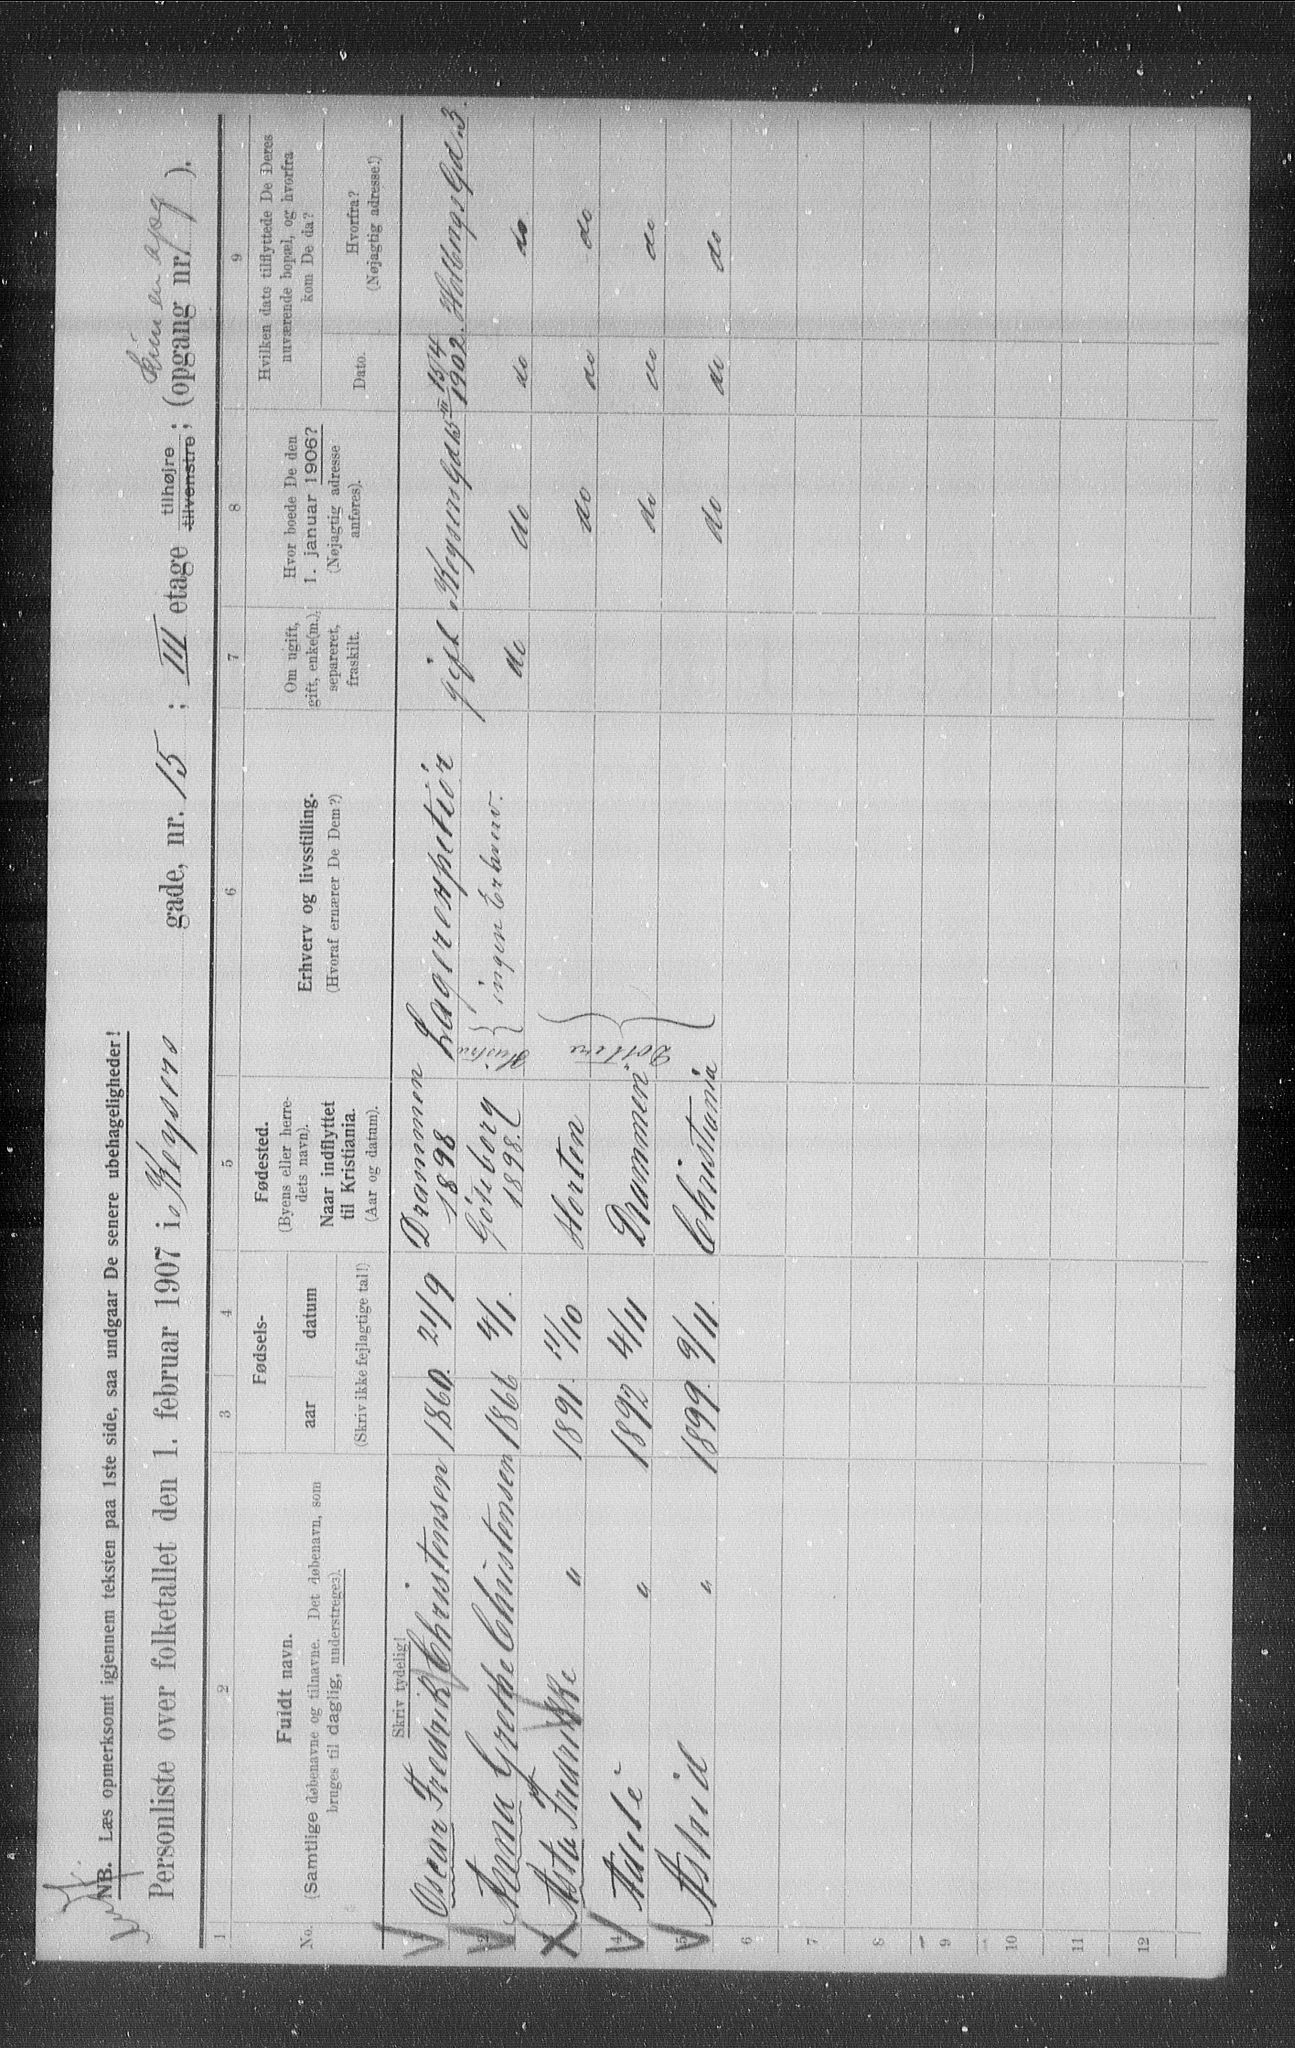 NB. Læs opmerksomt igjennem teksten paa 1ste side, saa undgaar De senere ubehageligheder!
Personliste over folketallet den 1. februar 1907 i Keysers gade, nr. 15 ; III etage tilhøjre tilvenstre ; (opgang nr. ).
Kun en opg
1 2 3 4 5 6 7 8 9
No.
Fuldt navn.
(Samtlige døbenavne og tilnavne. Det døbenavn, som
bruges til daglig, understreges).
Fødsels-
aar datum
(Skriv ikke fejlagtige tal!)
Fødested.
(Byens eller herre-
dets navn).
Naar indflyttet
til Kristiania.
(Aar og datum).
Erhverv og livsstilling.
(Hvoraf ernærer De Dem?)
Om ugift,
gift, enke(m.),
separeret,
fraskilt.
Hvor boede De den
1. januar 1906?
(Nøjagtig adresse
anføres).
Hvilken dato tilflyttede De Deres
nuværende bopæl, og hvorfra
kom De da?
Dato.
Hvorfra?
(Nøjagtig adresse!)
Skriv tydelig!
1 Oscar Fredrik Christensen 1860. 21/9 Drammen 1898 Lagerexpeditiør gift Keysersgd 15 III 15/4 1902. Holbergs Gd. 3.
2 Anna Grethe Christensen 1866 4/1. Göteborg 1898. Hustru ingen Erhverv. do do do do
3 Asta Fredrikke " 1891. 11/10 Horten do do do
4 Adele " 1892 4/11 Drammen do do do
5 Astrid " 1899. 9/11. Christiania do do do
Dottere
6
7
8
9
10
11
12